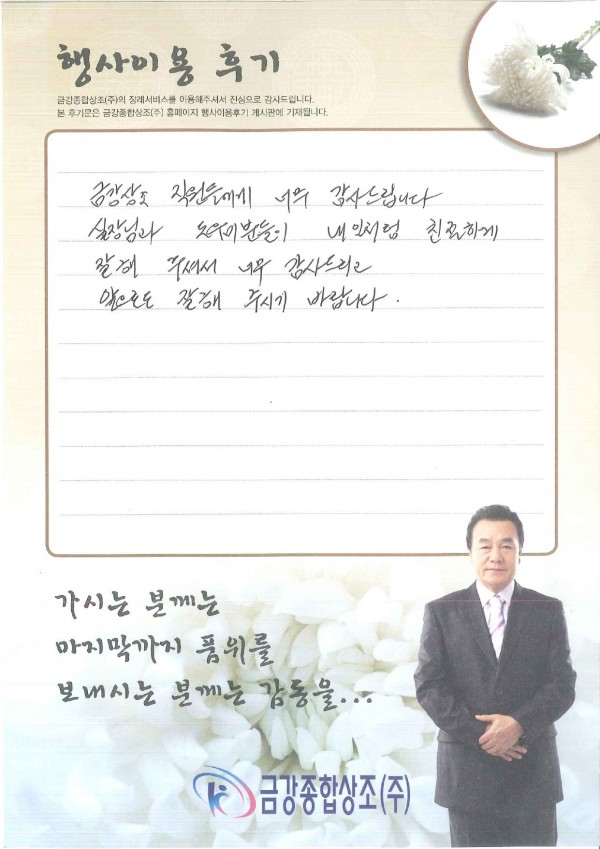 행사이용 후기
금강종합상조(주)의 장례서비스를 이용해주셔서 진심으로 감사드립니다.
본 후기문은 금강종합상조(주) 홈페이지 행사이용후기 게시판에 기재됩니다.
금강상조 직원들에게 너무 감사드립니다
실장님과 도우미분들이 내일처럼 친절하게
잘해 주셔서 너무 감사드리고
앞으로도 잘해 주시기 바랍니다.
가시는 분께는
마지막까지 품위를
보내시는 분께는 감동을...
금강종합상조(주)